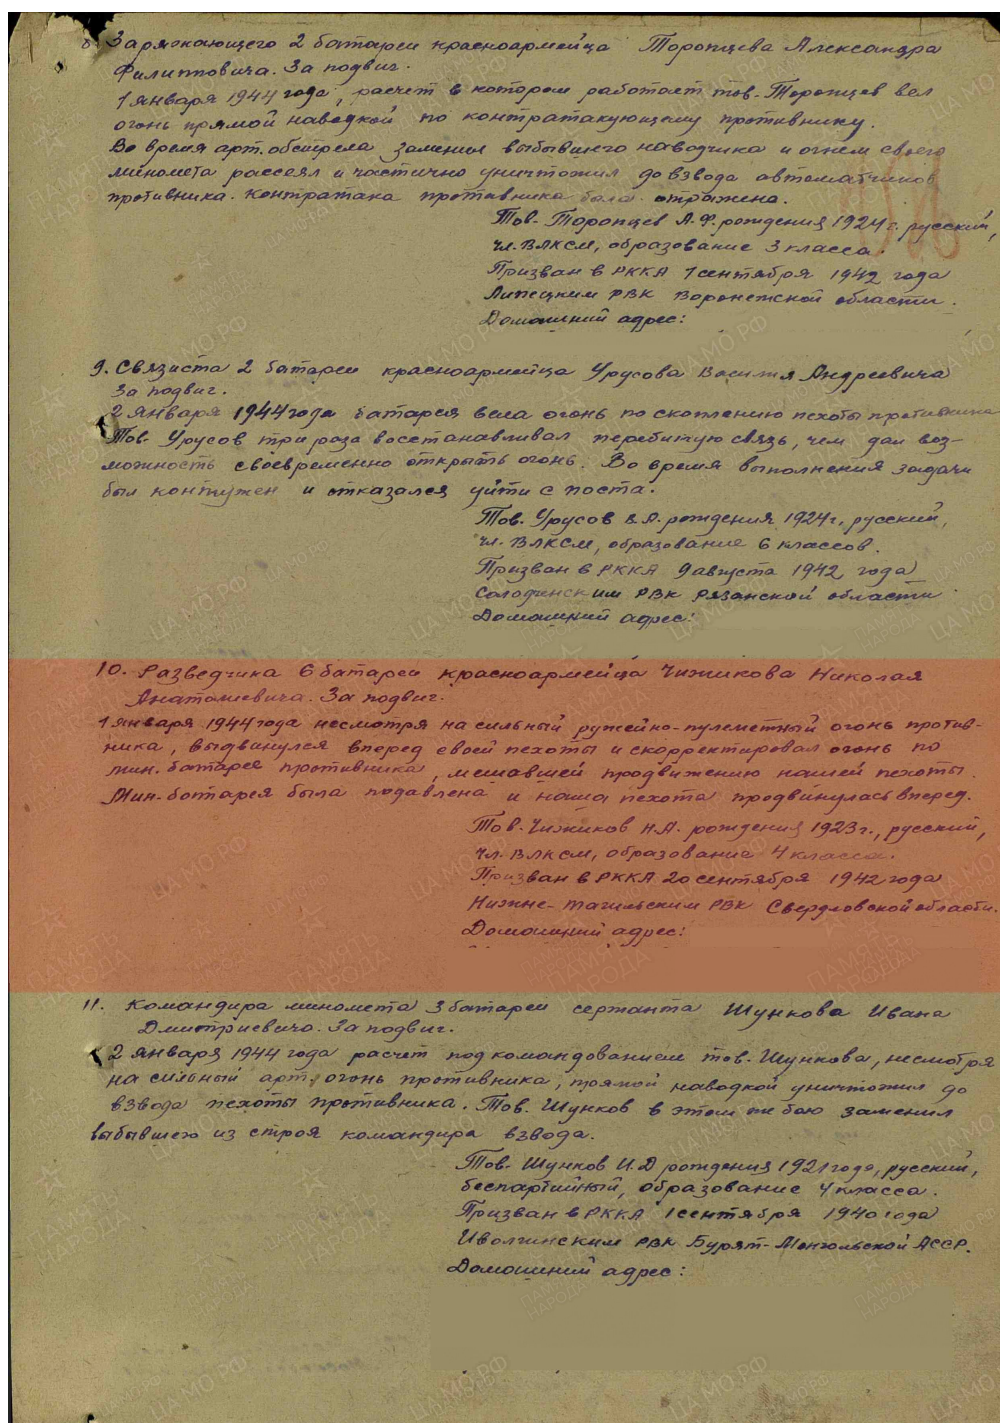 8. Заряжающего 2 батареи красноармейца Торопцева Александра
Филипповича. За подвиг.
1 января 1944 года, расчет в котором работает тов. Торопцев вел
огонь прямой наводкой по контратакующему противнику.
Во время арт. обстрела заменил выбывшего наводчика и огнем своего
миномета рассеял и частично уничтожил до взвода автоматчиков
противника. Контратака противника была отражена.
Тов. Торопцев А.Ф. рождения 1924 г. русский,
чл. ВЛКСМ, образование 3 класса.
Призван в РККА 1 сентября 1942 года
Липецким РВК Воронежской области.
Домашний адрес:
9. Связиста 2 батареи красноармейца Урусова Василия Андреевича
За подвиг.
2 января 1944 года батарея вела огонь по скоплению пехоты противника
Тов. Урусов три раза восстанавливал перебитую связь, чем дал воз-
можность своевременно открыть огонь. Во время выполнения задачи
был контужен и отказался уйти с поста.
Тов. Урусов В.А. рождения 1924 г., русский,
чл. ВЛКСМ, образование 6 классов.
Призван в РККА 9 августа 1942 года
Солодчинским РВК Рязанской области.
Домашний адрес:
10. Разведчика 6 батареи красноармейца Чижикова Николая
Анаташевича. За подвиг.
1 января 1944 года несмотря на сильный ружейно-пулеметный огонь против-
ника, выдвинулся вперед своей пехоты и скорректировал огонь по
мин. батарее противника, мешавшей продвижению нашей пехоты.
Мин-батарея была подавлена и наша пехота продвинулась вперед.
Тов. Чижиков Н.А. рождения 1923 г., русский,
чл. ВЛКСМ, образование 4 класса.
Призван в РККА 20 сентября 1942 года
Нижне-Тагильским РВК Свердловской области.
Домашний адрес:
11. Командира миномета 3 батареи сержанта Шункова Ивана
Дмитриевича. За подвиг.
2 января 1944 года расчет под командованием тов. Шункова, несмотря
на сильный арт. огонь противника, прямой наводкой уничтожил до
взвода пехоты противника. Тов. Шунков в этом же бою заменил
выбывшего из строя командира взвода.
Тов. Шунков И.Д рождения 1921 года, русский,
беспартийный, образование 4 класса.
Призван в РККА 1 сентября 1940 года
Иволгинским РВК Бурят-Монгольской АССР.
Домашний адрес: